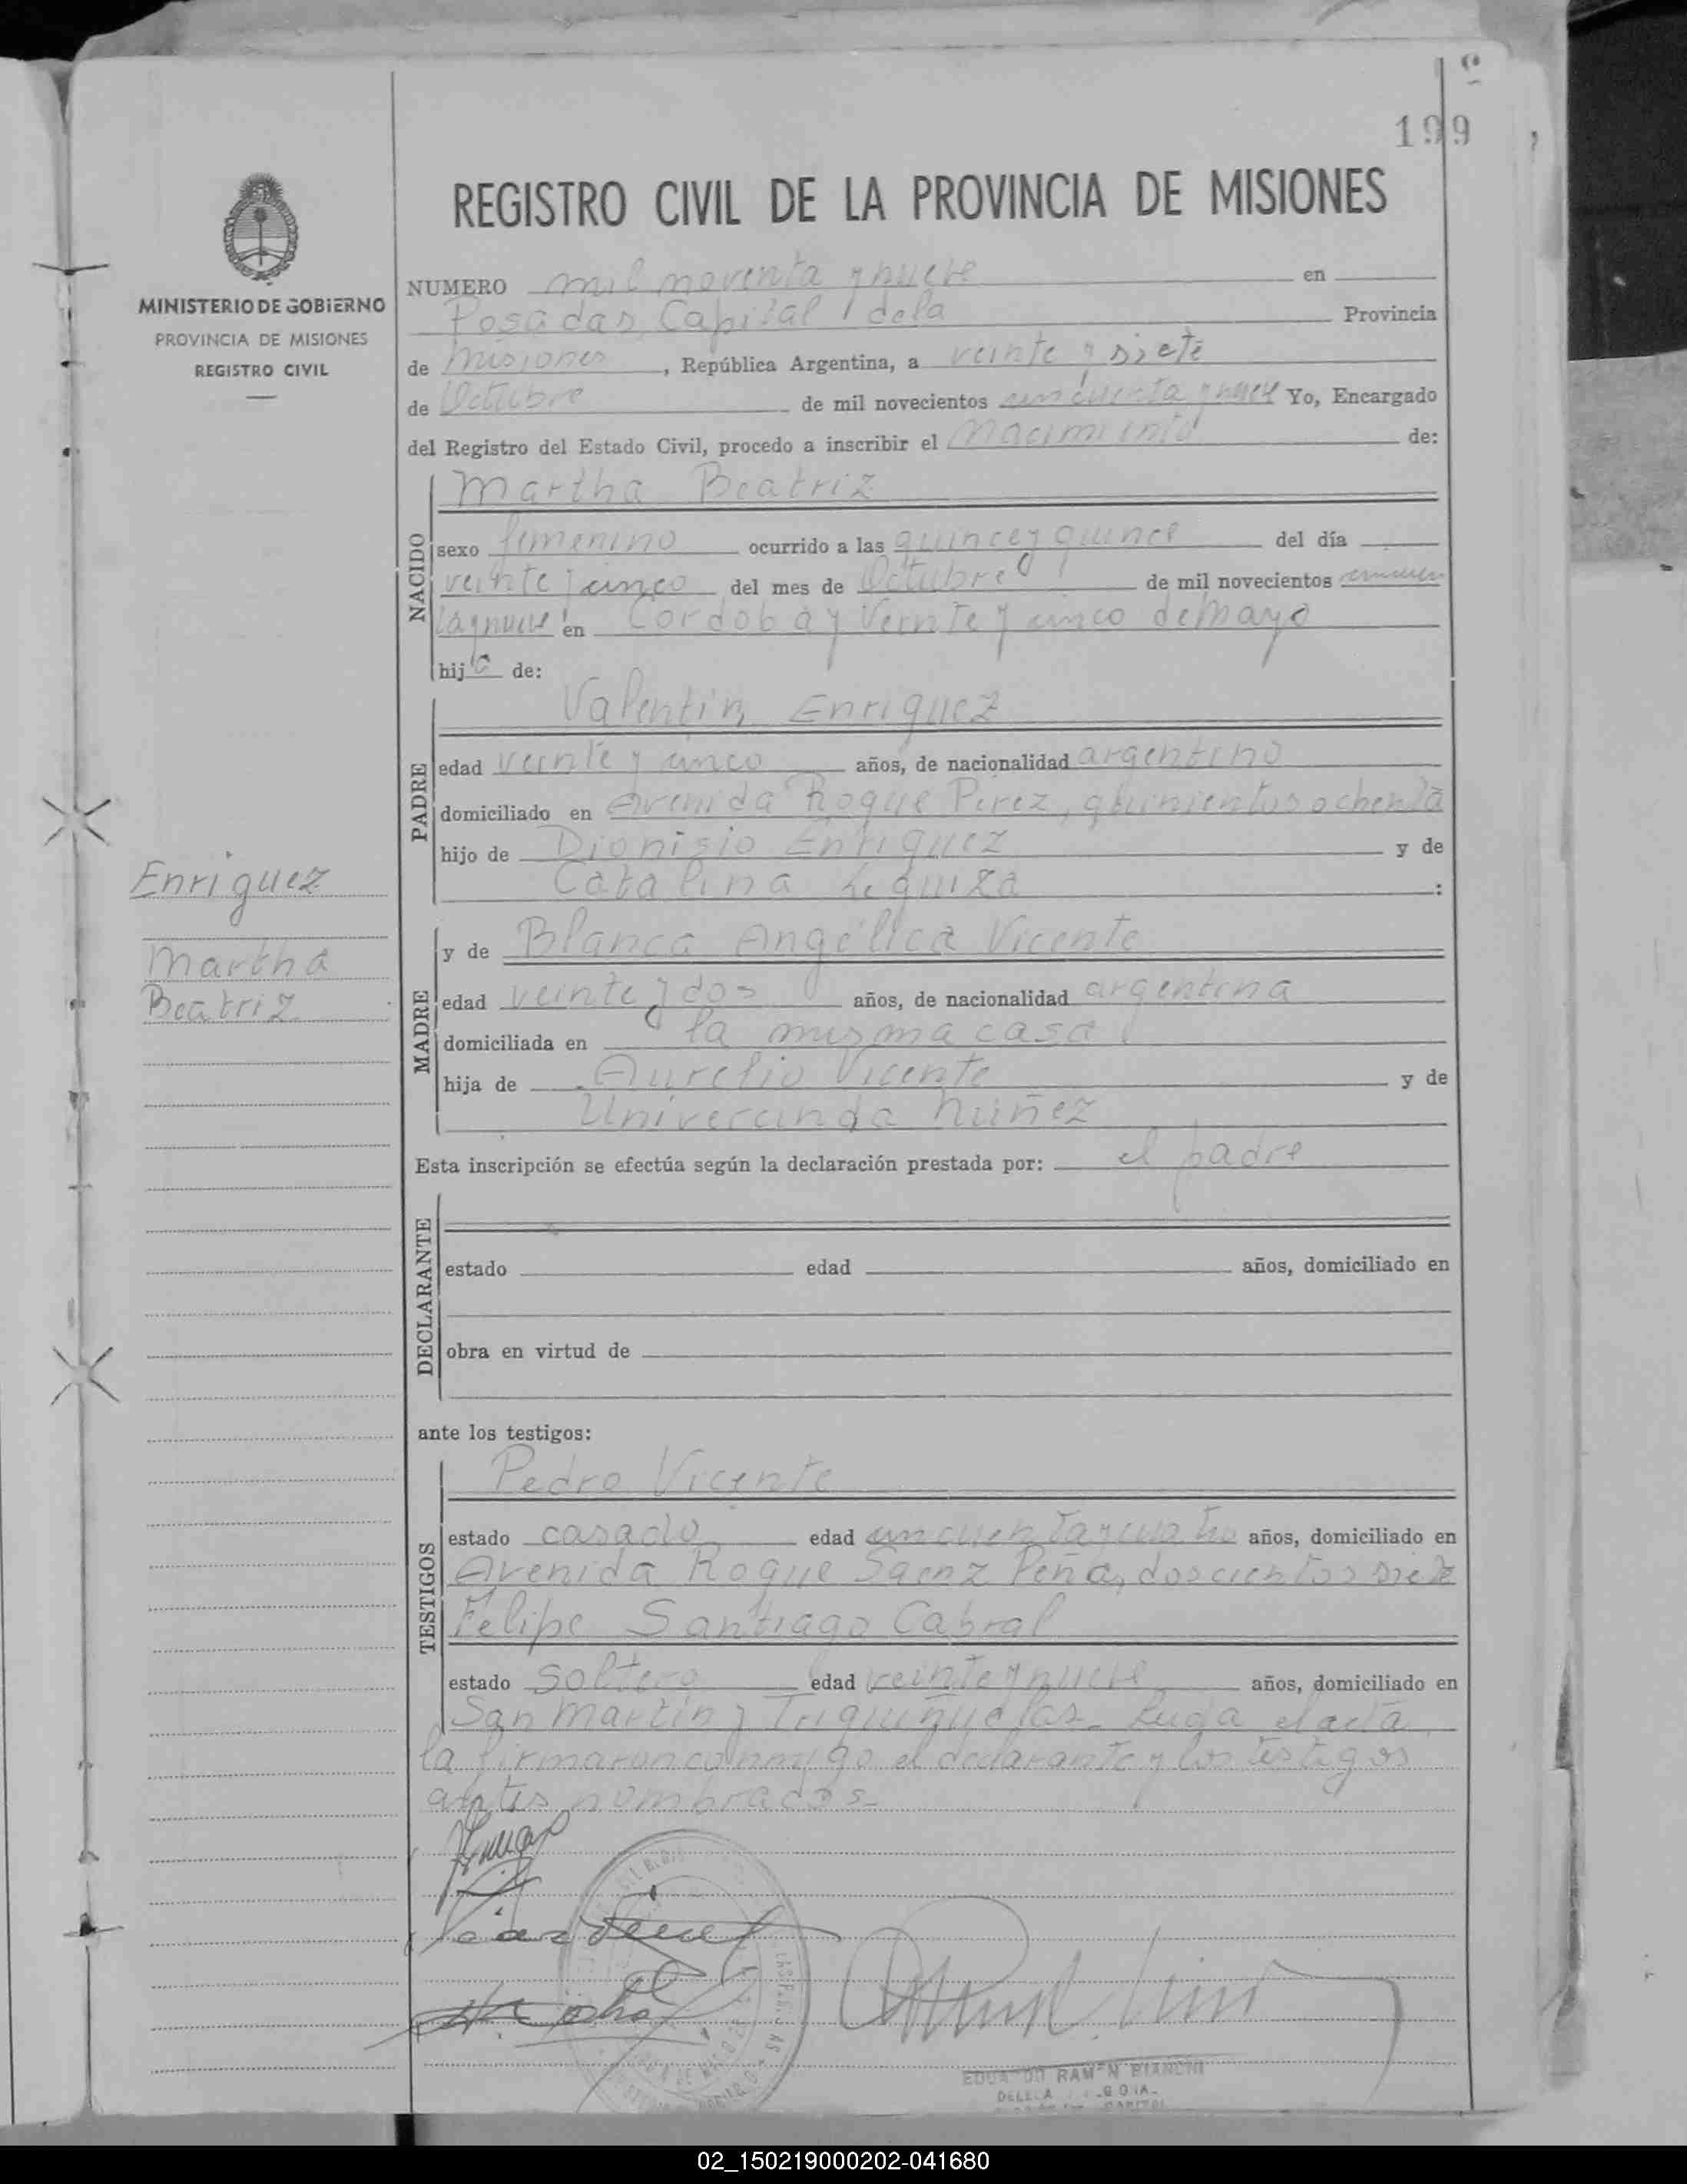 199
REGISTRO CIVIL DE LA PROVINCIA DE MISIONES
MINISTERIO DE GOBIERNO
PROVINCIA DE MISIONES
REGISTRO CIVIL
NUMERO mil noventa y nueve en
Posadas, Capital dela Provincia
de Misiones, República Argentina, a veinte y siete
de Octubre de mil novecientos cincuenta y nueve Yo, Encargado
del Registro del Estado Civil, procedo a inscribir el Nacimiento de:
NACIDO
Martha Beatriz
sexo femenino ocurrido a las quince y quince del día
veinte y cinco del mes de Octubre de mil novecientos cincuen
ta y nueve en Cordoba y Veinte y cinco de Mayo
hija de:
PADRE
Valentin Enriquez
edad veinte y cinco años, de nacionalidad argentino
domiciliado en Avenida Roque Perez, quinientos ochenta
hijo de Dionisio Enriquez y de
Catalina Leguiza :
Enriguez
Martha
Beatriz
MADRE
y de Blanca Angélica Vicente
edad veinte y dos años, de nacionalidad argentina
domiciliada en la misma casa
hija de Aurelio Vicente y de
Univercinda Núñez
Esta inscripción se efectúa según la declaración prestada por: el padre
DECLARANTE
estado edad años, domiciliado en
obra en virtud de
ante los testigos:
TESTIGOS
Pedro Vicente
estado casado edad cincuenta y cuatro años, domiciliado en
Avenida Roque Saenz Peña, doscientos siete
Felipe Santiago Cabral
estado Soltero edad veinte y nueve años, domiciliado en
San Martín y Triguiñuelas. Leída el acta
la firmaron conmigo el declarante y los testigos
antes nombrados.
EDUARDO RAMON BIANCHI
02_150219000202-041680